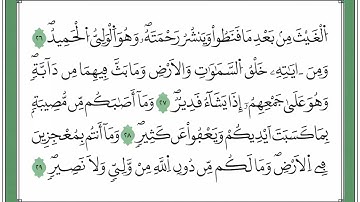 اَ۬لْغَيْثَ مِنۢ بَعْدِ مَا قَنَطُواْ وَيَنشُرُ رَحْمَتَهُۥۖ وَهُوَ اَ۬لْوَلِيُّ اُ۬لْحَمِيدُۖ ٢٦
وَمِنَ ـايَٰتِهِۦ خَلْقُ اُ۬لسَّمَٰوَٰتِ وَالَارْضِ وَمَا بَثَّ فِيهِمَا مِن دَآبَّةٖۖ
وَهُوَ عَلَىٰ جَمْعِهِمُۥٓ إِذَا يَشَآءُ قَدِيرٞۖ ٢٧ وَمَآ أَصَٰبَكُم مِّن مُّصِيبَةِۢ
بِمَا كَسَبَتَ اَيْدِيكُمْ وَيَعْفُواْ عَن كَثِيرٖۖ ٢٨ وَمَآ أَنتُم بِمُعْجِزِينَ
فِے اِ۬لَارْضِۖ وَمَا لَكُم مِّن دُونِ اِ۬للَّهِ مِنْ وَّلِيّٖ وَلَا نَصِيرٖۖ ٢٩